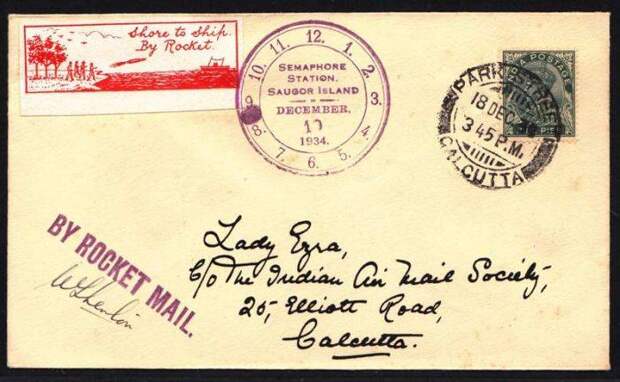 Shore to Ship.
By Rocket.
12. 1. 2. 3. 4. 5. 6. 7. 8. 9. 10. 11.
SEMAPHORE
STATION.
SAUGOR ISLAND
DECEMBER.
10
1934.
POSTAGE
PARK STREET
18 DEC
3 45 P.M.
CALCUTTA
BY ROCKET MAIL.
Lady Ezra,
C/o The Indian Air Mail Society,
25, Elliott Road,
Calcutta.